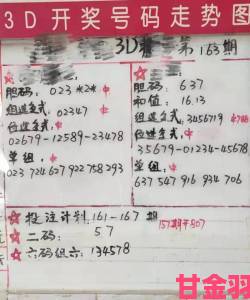 3D开奖号码走势图
3D 第163期
☆
胆码: 023 *2* 中
组选复式:
02347 中
位选复式:
02679-12589-23478
单组:
023 724 627 922 758 293
☆
胆码: 637
和值: 16.13
组选复式: 3456719 中
位选复式:
35679-01234-45678
单组:
637 547 916 934 706
☆ 投注计划: 161-167 期
157期开507
☆ 二码: 57
☆ 六码组六: 134578
甘金羽